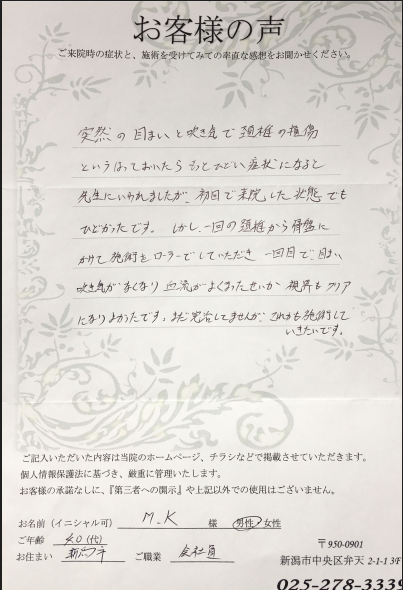 お客様の声
ご来院時の症状と、施術を受けてみての率直な感想をお聞かせください。
突然の目まいと吹き気で頚椎の損傷
というほっておいたらもっとひどい症状になると
先生にいわれましたが、初回で来院した状態でも
ひどかったです。しかし、一回の頚椎から骨盤に
かけて施術をローラーでしていただき一回目で、目まい
吹き気がなくなり血流がよくなったせいか視界もクリア
になりよかったです。まだ完治してませんが、これからも施術して
いきたいです。
ご記入いただいた内容は当院のホームページ、チラシなどで掲載させていただきます。
個人情報保護法に基づき、厳重に管理いたします。
お客様の承諾なしに、『第三者への開示』や上記以外での使用はございません。
お名前（イニシャル可） M.K 様 男性/女性
ご年齢 40（代）
お住まい ご職業 会社員
〒950-0901
新潟市中央区弁天 2-1-1 3F
025-278-3339